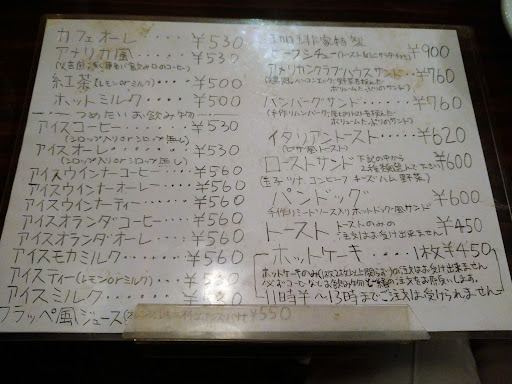 カフェオーレ・・・・¥530
アメリカ風・・・・¥530
紅茶(レモンorミルク)・・・¥500
ホットミルク・・・・¥500
つめたいお飲み物
アイスコーヒー・・・・¥530
(シロップ入りorシロップ無し)
アイスオーレ・・・・¥530
(シロップ入りorシロップ無し)
アイスウインナーコーヒー・・・¥560
アイスウインナーオーレ・・・¥560
アイスウインナーティー・・・¥560
アイスオランダコーヒー・・・¥560
アイスオランダオーレ・・・¥560
アイスモカミルク・・・・¥560
アイスティー(レモンorミルク)・・・¥530
アイスミルク・・・・¥530
フラッペ風ジュース ¥550
珈琲家特製
ビーフシチュー ¥900
アメリカンクラブハウスサンド・・・¥760
ボリュームたっぷりのサンド)
ハンバーグサンド・・・・¥760
(手作りハンバーグ
ボリュームたっぷりのサンド)
イタリアントースト・・・・¥620
(ピザ風トースト)
ローストサンド 下記の中から ¥600
(玉子 ツナ コンビーフ チーズ ハム 野菜)
パンドッグ・・・・¥600
手作りミートソース入りホットドッグ風サンド
トースト トーストのみの ¥450
ご注文はお受け出来ません
ホットケーキ・・・・1枚¥450
11時半〜13時までご注文は受けられません